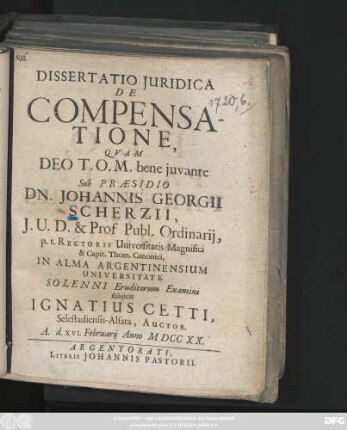 DISSERTATIO JURIDICA
DE
COMPENSA-
TIONE,
QVAM
DEO T.O.M. bene juvante
Sub PRÆSIDIO
DN. JOHANNIS GEORGII
SCHERZII,
J. U. D. & Prof Publ. Ordinarij,
p. t. RECTORIS Universitatis Magnifici
& Capit. Thom. Canonici,
IN ALMA ARGENTINENSIUM
UNIVERSITATE
SOLENNI Eruditorum Examini
subjicit
IGNATIUS CETTI,
Selestadiensis-Alsata, AUCTOR.
A. d. XVI. Februarij Anno MDCC XX.
ARGENTORATI,
LITERIS JOHANNIS PASTORII.
1720,6.